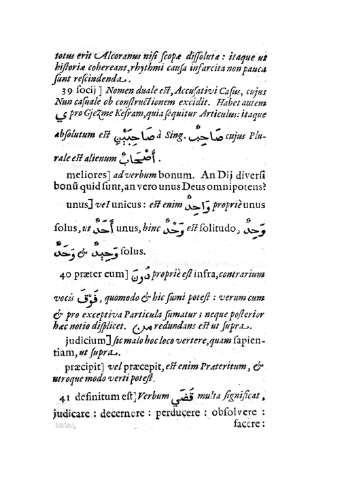 totus erit Alcoranus nisi scopæ dissolutæ: itaque ut
historiæ cohereant, rhythmi causa infarcita non pauca
sunt rescindenda.
39 socij] Nomen duale est, Accusativi Casus, cujus
Nun casuale ob constructionem excidit. Habet autem
ي pro Gjezme Kesram, quia sequitur Articulus: itaque
absolutum est صَاحِبَيْنِ à Sing. صَاحِبٌ cujus Plu-
rale est alienum أَصْحَابٌ.
meliores] ad verbum bonum. An Dij diversi
boni quid sunt, an vero unus Deus omnipotens?
unus] vel unicus: est enim وَاحِدٌ propriè unus
solus, ut أَحَدٌ unus, hinc وَحْدٌ est solitudo, وَحِدٌ
وَحَدٌ & وَحِيدٌ solus.
40 præter eum] دُونَ propriè est infra, contrarium
vocis فَوْقَ, quomodo & hic sumi potest: verum cum
& pro exceptiva Particula sumatur; neque posterior
hæc notio displicet. مِن redundans est ut supra.
judicium] sic malo hoc loco vertere, quam sapien-
tiam, ut supra.
præcipit] vel præcepit, est enim Præteritum, &
utroque modo verti potest.
41 definitum est] Verbum قَضَي multa significat,
judicare: decernere: perducere: obsolvere:
facere: